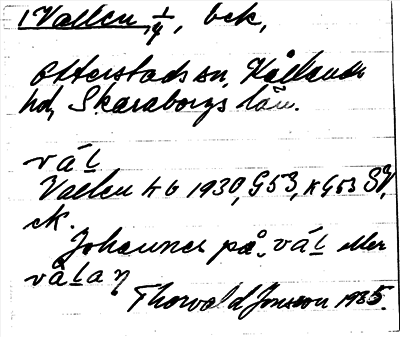 1 Vallen, 1/4, bek,
Otterstads sn, Kållands
hd, Skaraborgs län.
vál
Vallen hb 1930, G53, KG53 SV,
ek.
Johannes på vál eller
válaŋ
Thorvald Jonsson 1935.